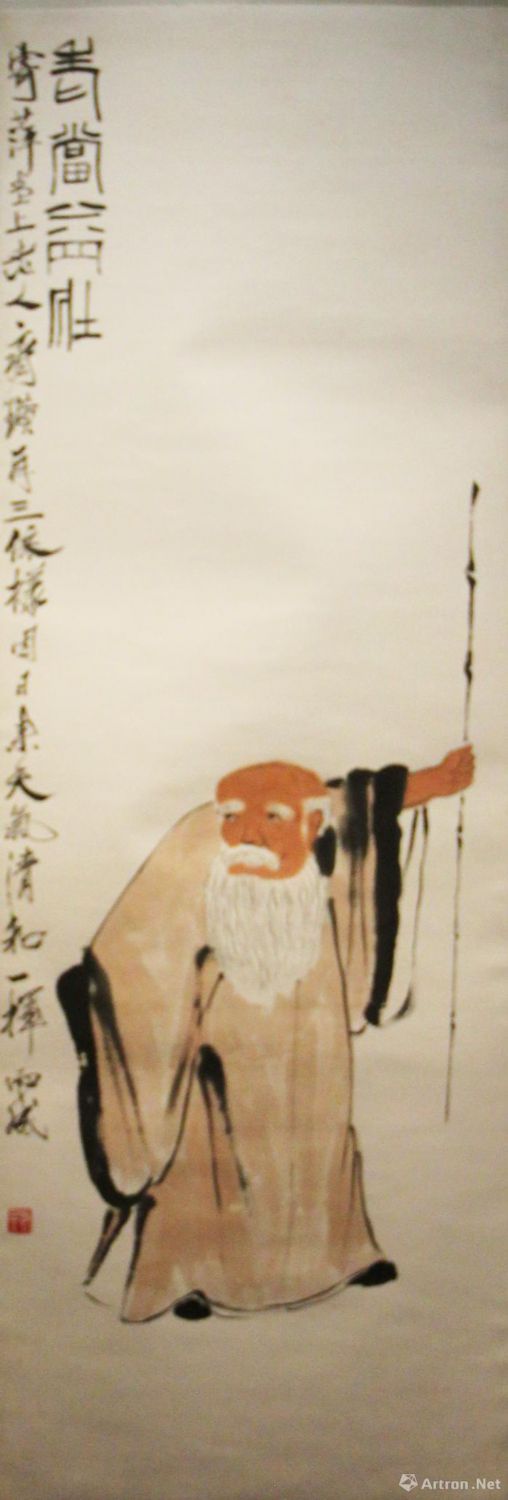 老當益壯
寄萍堂上老人齊璜再三依樣因日來天氣清和一揮而成
Artron.Net